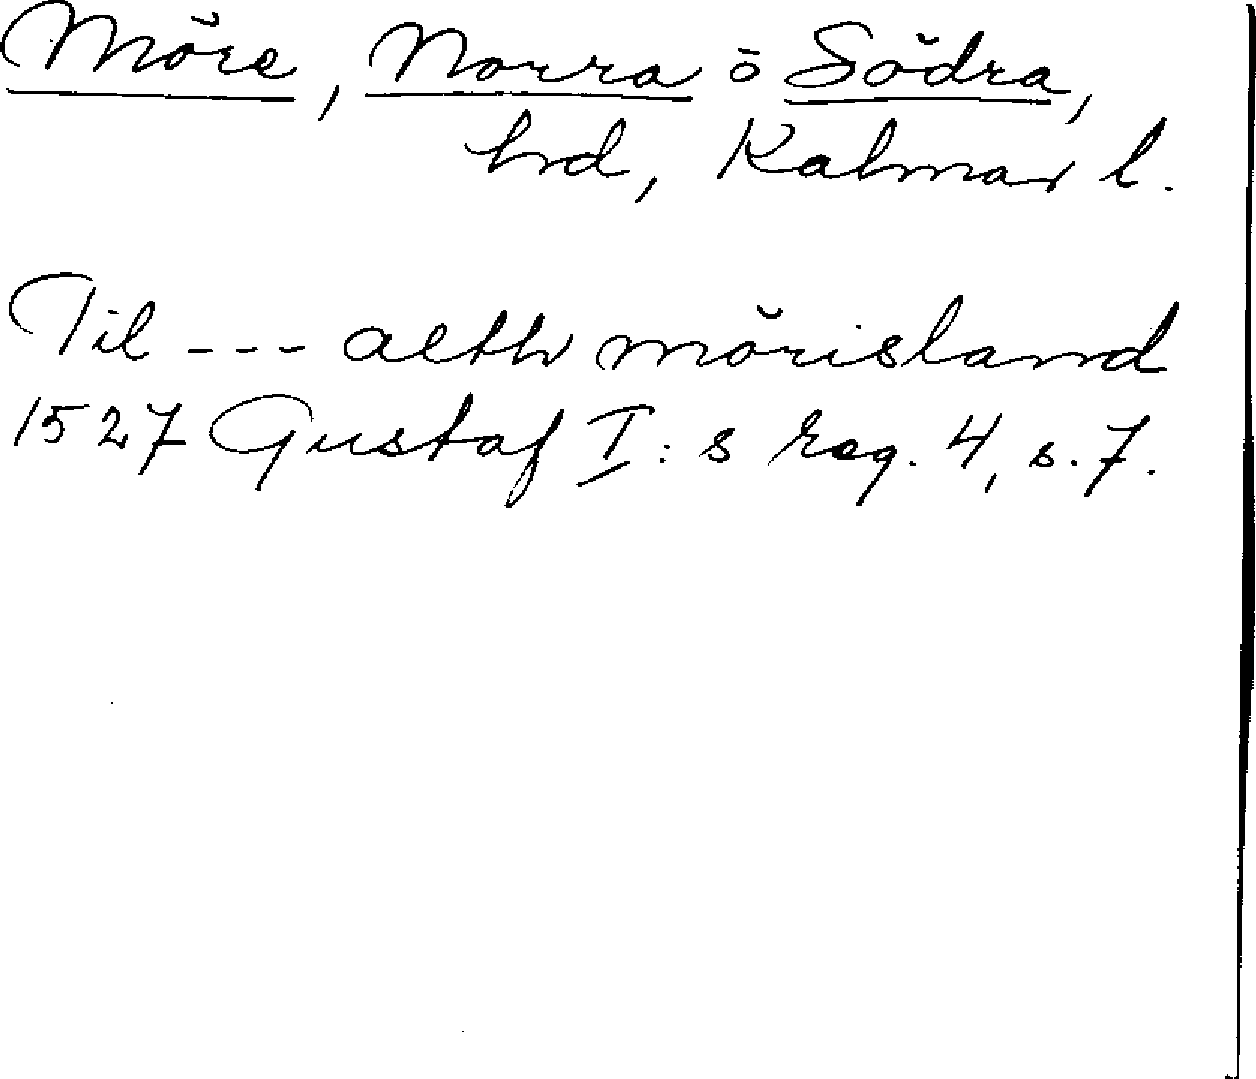 Möre, Norra o Södra,
hrd, Kalmar l.
Til --- alth mörisland
1527 Gustaf I:s reg. 4, s. 7.